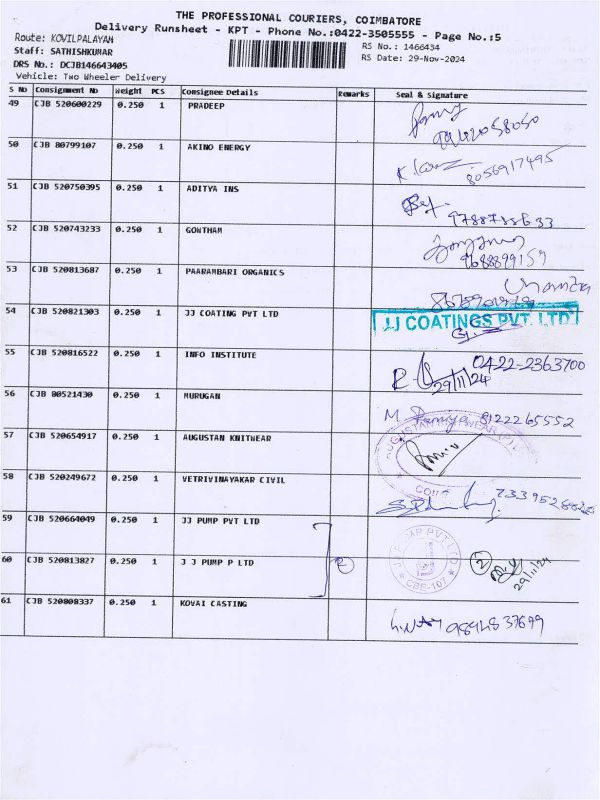 THE PROFESSIONAL COURIERS, COIMBATORE
Delivery Runsheet - KPT - Phone No.:0422-3505555 - Page No.:5
Route: KOVILPALAYAM
RS No.: 1466434
Staff: SATHISHKUMAR
RS Date: 29-Nov-2024
DRS No.: DCJB146643405
Vehicle: Two Wheeler Delivery
S No Consignment No Weight PCS Consignee Details Remarks Seal & Signature
49 CJB 520600229 0.250 1 PRADEEP
50 CJB 80799107 0.250 1 AKINO ENERGY
8056917495
51 CJB 520750395 0.250 1 ADITYA INS
52 CJB 520743233 0.250 1 GONTHAM
9688899159
53 CJB 520813687 0.250 1 PAARAMBARI ORGANICS
54 CJB 520821303 0.250 1 JJ COATING PVT LTD
JJ COATINGS PVT. LTD
55 CJB 520816522 0.250 1 INFO INSTITUTE
0422-2363700
29/11/24
56 CJB 80521430 0.250 1 MURUGAN
M. Ramya 8122265552
57 CJB 520654917 0.250 1 AUGUSTAN KNITWEAR
58 CJB 520249672 0.250 1 VETRIVINAYAKAR CIVIL
59 CJB 520664049 0.250 1 JJ PUMP PVT LTD
60 CJB 520813827 0.250 1 J J PUMP P LTD
2
CBE-107
2
29/11/24
61 CJB 520808337 0.250 1 KOVAI CASTING